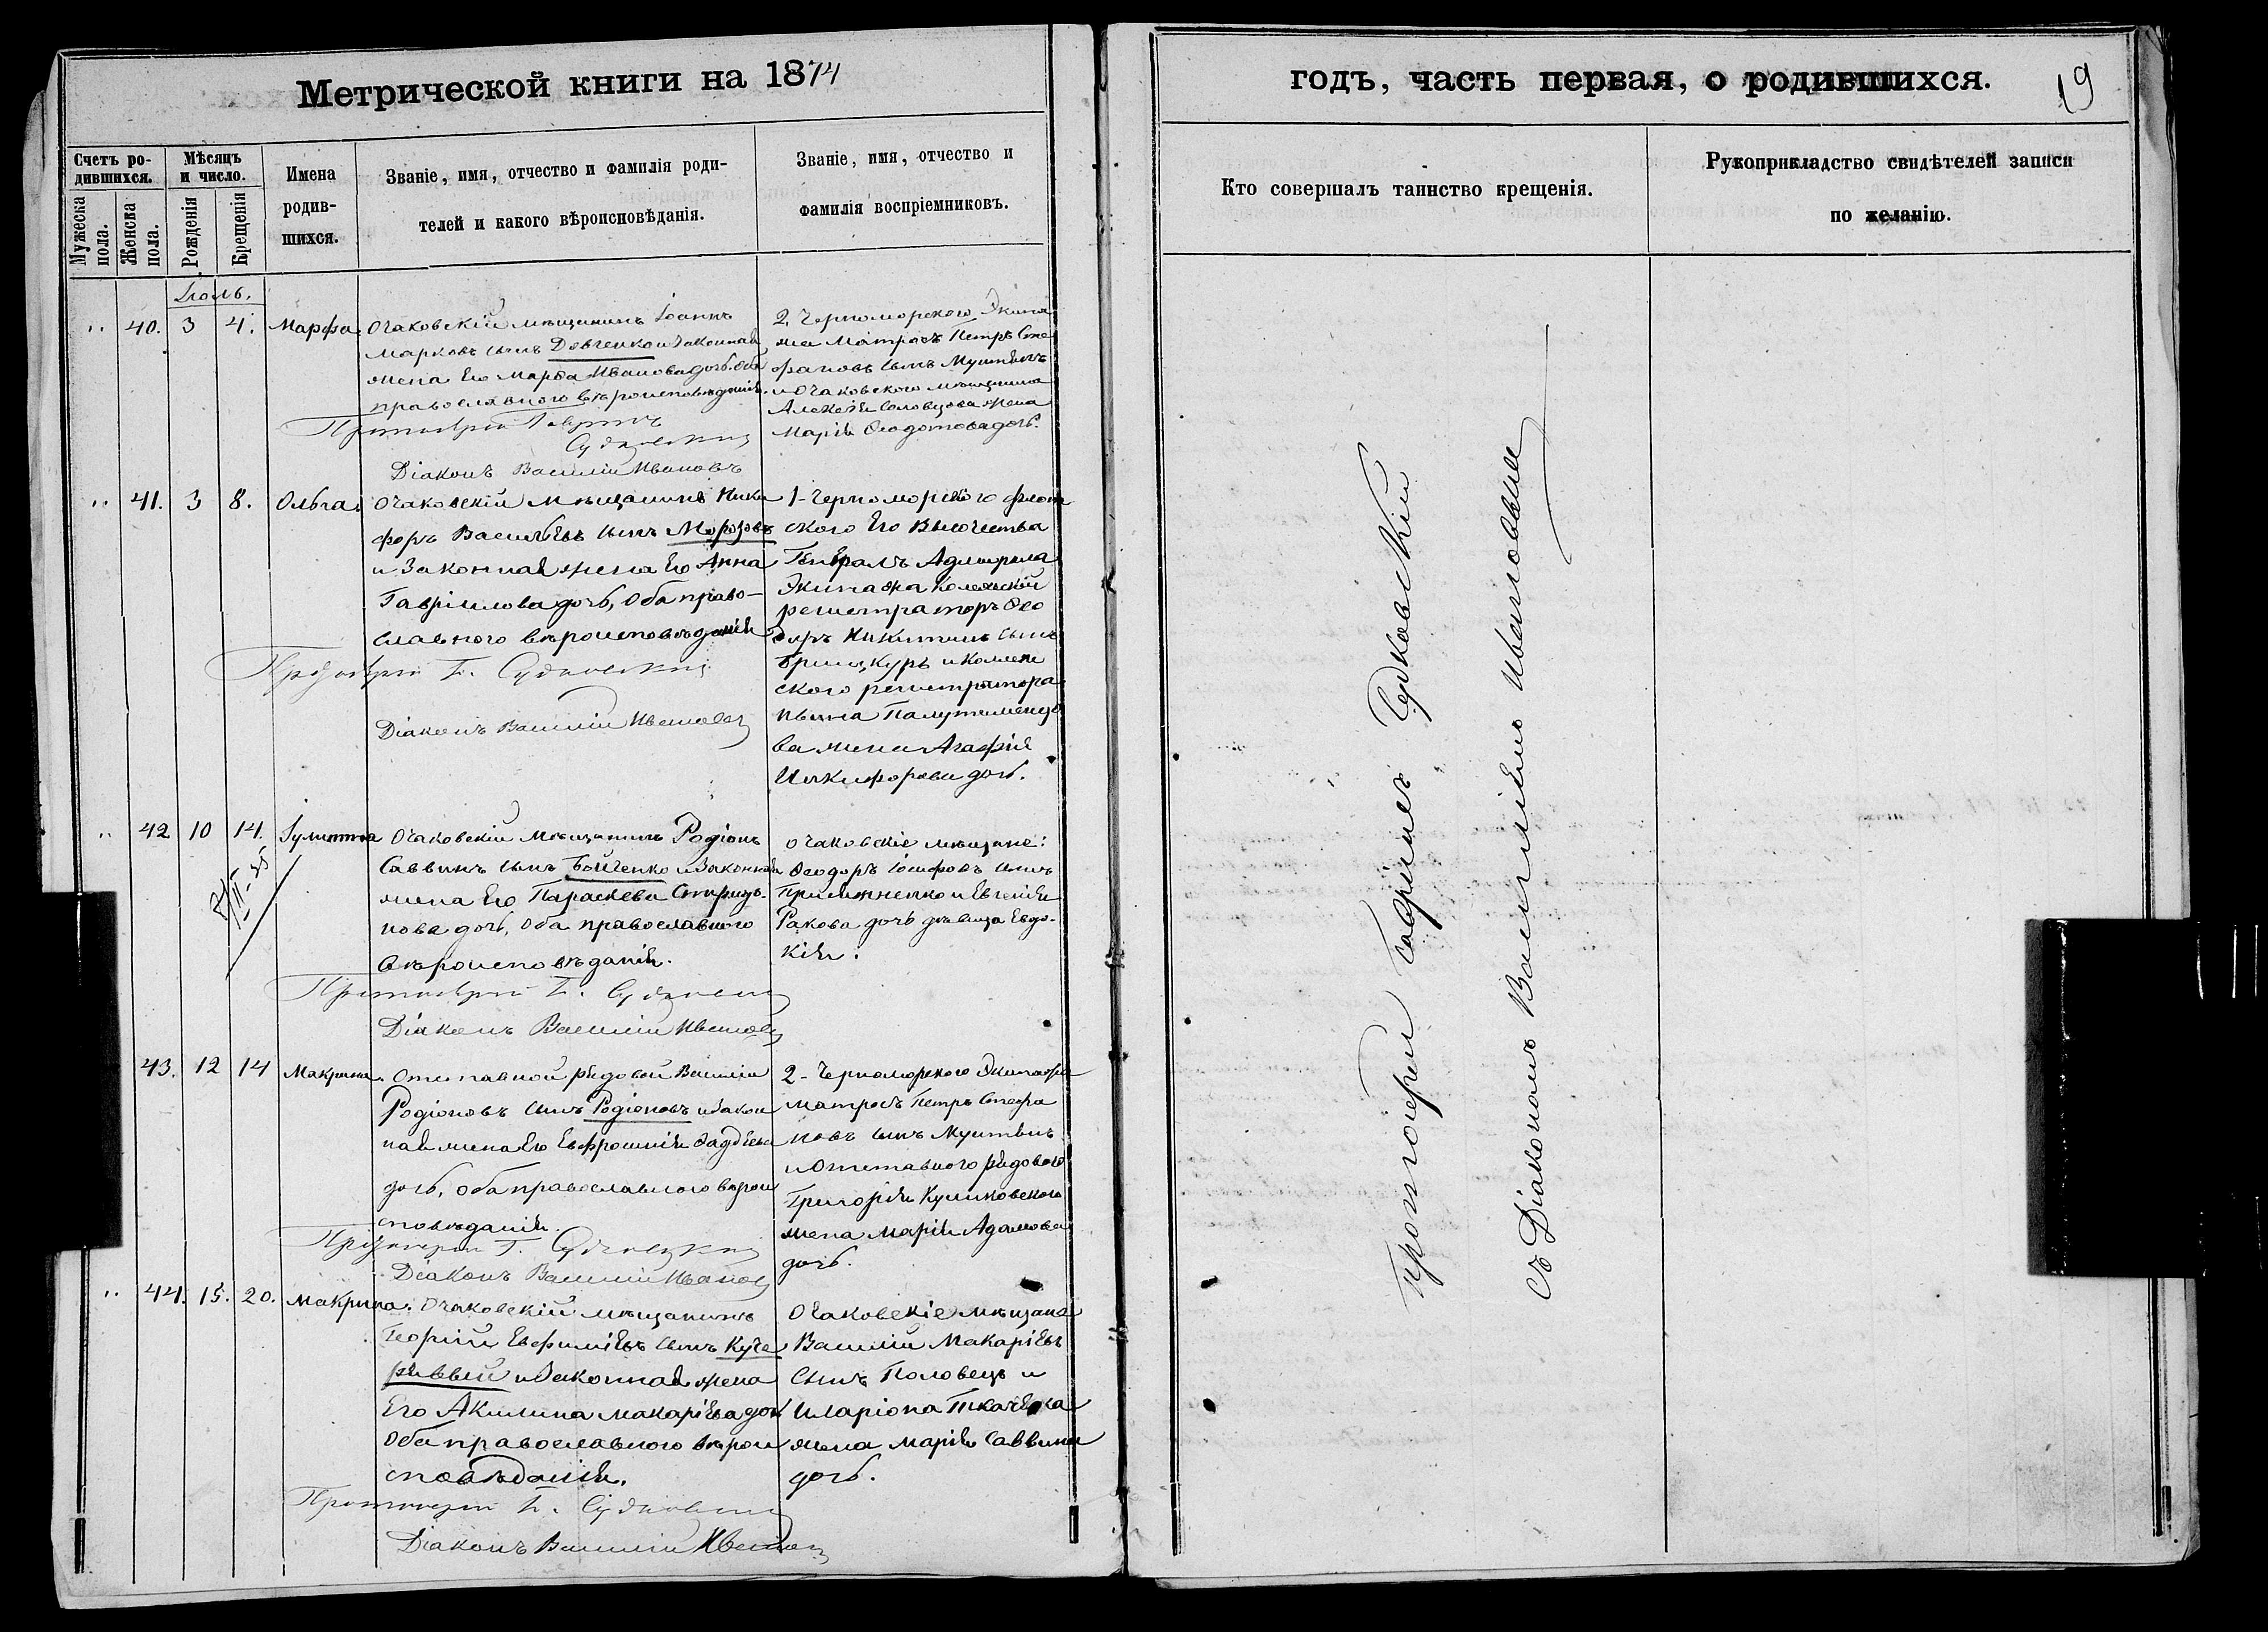 Метрической книги на 1874
Счетъ родившихся.
Мужеска пола.
Женска пола.
Мѣсяцъ и число.
Рожденія
Крещенія
Имена родившихся.
Званіе, имя, отчество и фамилія родителей и какого вѣроисповѣданія.
Званіе, имя, отчество и фамилія воспріемниковъ.
Іюль.
" 40. 3 4. Марфа.
Очаковскій мѣщанинъ Іоаннъ
Марковъ сынъ Довченко и законная
жена его Марѳа Иванова дочь. Оба
православного вѣроисповѣданія.
Протоіерей Гавріилъ
Судковскій
Діаконъ Василій Ивановъ
2. Черноморского Экипа
жа Матросъ Петръ Сте
фановъ сынъ
и Очаковского мѣщанина
Алексія Соловцова жена
Марія Ѳеодотова дочь.
" 41. 3 8. Ольга.
Очаковскій мѣщанинъ Ники
форъ Васильевъ сынъ Морозовъ
и Законная жена его Анна
Гавріилова дочь, Оба право-
славного вѣроисповѣданія
Протоіерей Г. Судковскій
Діаконъ Василій Ивановъ
1-Черноморского флот
ского Его Высочества
Генералъ Адмирала
Экипажа Колежскій
регистраторъ Ѳео
доръ Никитинъ сынъ
и Колеж
ского регистратора
жена Агафія
Никифорова дочь.
" 42 10 14. Іулитта
Очаковскій Мѣщанинъ Родіонъ
Саввинъ сынъ Бойченко и Законная
жена его Параскева Спиридо-
нова дочь, Оба православного
вѣроисповѣданія.
Протоіерей Г. Судковскій
Діаконъ Василій Ивановъ
Очаковскіе мѣщане:
Ѳеодоръ Іосифовъ сынъ
и Евгенія
Ракова дочь дѣвица Евдо-
кія.
43. 12 14 Макрина.
Отставной рядовой Василій
Родіоновъ сынъ Родіоновъ и Закон
ная жена его Евфросинія Фаддѣева
дочь, Оба православного вѣрои
сповѣданія.
Протоіерей Г. Судковскій
Діаконъ Василій Ивановъ
2-Черноморского Экипажа
Матросъ Петръ Стефа
новъ сынъ
и Отставного рядового
Григорія Куликовского
жена Марія Адамова
дочь.
" 44. 15. 20. Макрина.
Очаковскій мѣщанинъ
Георгій Евфиміевъ сынъ Куче
рявый и Законная жена
его Акилина Макаріева дочь
Оба православного вѣрои
сповѣданія.
Протоіерей Г. Судковскій
Діаконъ Василій Ивановъ
Очаковскіе мѣщане
Василій Макаріевъ
сынъ Половецъ и
Иларіона Ткаченка
жена Марія Саввина
дочь.
годъ, часть первая, о родившихся.
19
Кто совершалъ таинство крещенія.
Рукоприкладство свидѣтелей записи
по желанію.
Протоіерей Гавріилъ Судковскій
съ Діакономъ Василіемъ Ивановымъ